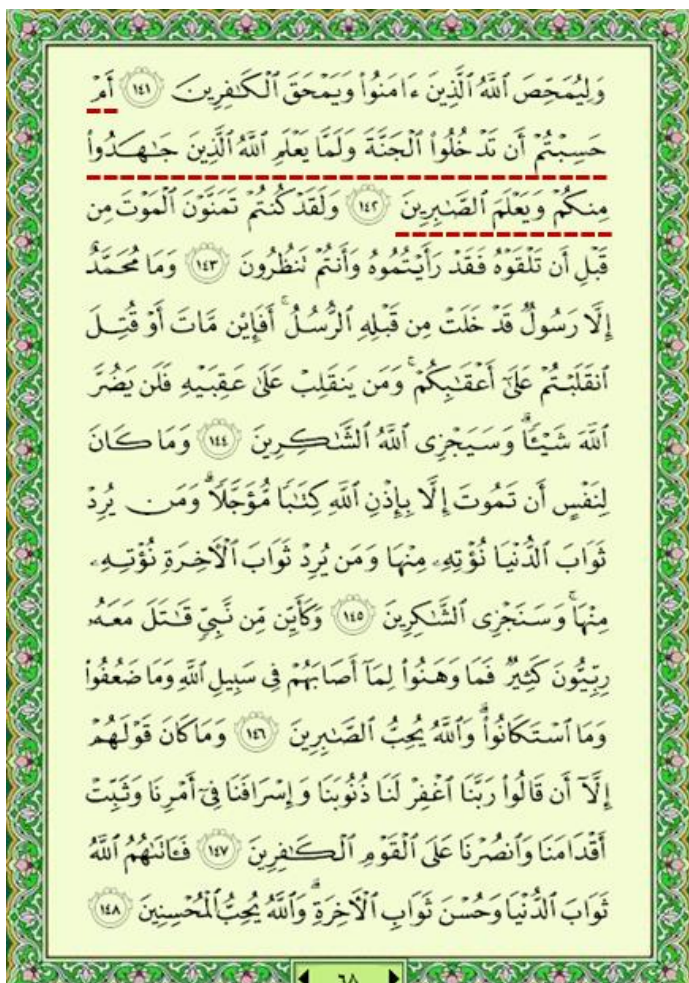 وَلِيُمَحِّصَ ٱللَّهُ ٱلَّذِينَ ءَامَنُوا۟ وَيَمْحَقَ ٱلْكَـٰفِرِينَ ١٤١ أَمْ
حَسِبْتُمْ أَن تَدْخُلُوا۟ ٱلْجَنَّةَ وَلَمَّا يَعْلَمِ ٱللَّهُ ٱلَّذِينَ جَـٰهَدُوا۟
مِنكُمْ وَيَعْلَمَ ٱلصَّـٰبِرِينَ ١٤٢ وَلَقَدْ كُنتُمْ تَمَنَّوْنَ ٱلْمَوْتَ مِن
قَبْلِ أَن تَلْقَوْهُ فَقَدْ رَأَيْتُمُوهُ وَأَنتُمْ تَنظُرُونَ ١٤٣ وَمَا مُحَمَّدٌ
إِلَّا رَسُولٌ قَدْ خَلَتْ مِن قَبْلِهِ ٱلرُّسُلُ ۚ أَفَإِي۟ن مَّاتَ أَوْ قُتِلَ
ٱنقَلَبْتُمْ عَلَىٰٓ أَعْقَـٰبِكُمْ ۚ وَمَن يَنقَلِبْ عَلَىٰ عَقِبَيْهِ فَلَن يَضُرَّ
ٱللَّهَ شَيْـًٔا ۗ وَسَيَجْزِى ٱللَّهُ ٱلشَّـٰكِرِينَ ١٤٤ وَمَا كَانَ
لِنَفْسٍ أَن تَمُوتَ إِلَّا بِإِذْنِ ٱللَّهِ كِتَـٰبًا مُّؤَجَّلًا ۗ وَمَن يُرِدْ
ثَوَابَ ٱلدُّنْيَا نُؤْتِهِۦ مِنْهَا وَمَن يُرِدْ ثَوَابَ ٱلْـَٔاخِرَةِ نُؤْتِهِۦ
مِنْهَا ۚ وَسَنَجْزِى ٱلشَّـٰكِرِينَ ١٤٥ وَكَأَيِّن مِّن نَّبِىٍّ قَـٰتَلَ مَعَهُۥ
رِبِّيُّونَ كَثِيرٌ فَمَا وَهَنُوا۟ لِمَآ أَصَابَهُمْ فِى سَبِيلِ ٱللَّهِ وَمَا ضَعُفُوا۟
وَمَا ٱسْتَكَانُوا۟ ۗ وَٱللَّهُ يُحِبُّ ٱلصَّـٰبِرِينَ ١٤٦ وَمَا كَانَ قَوْلَهُمْ
إِلَّآ أَن قَالُوا۟ رَبَّنَا ٱغْفِرْ لَنَا ذُنُوبَنَا وَإِسْرَافَنَا فِىٓ أَمْرِنَا وَثَبِّتْ
أَقْدَامَنَا وَٱنصُرْنَا عَلَى ٱلْقَوْمِ ٱلْكَـٰفِرِينَ ١٤٧ فَـَٔاتَىٰهُمُ ٱللَّهُ
ثَوَابَ ٱلدُّنْيَا وَحُسْنَ ثَوَابِ ٱلْـَٔاخِرَةِ ۗ وَٱللَّهُ يُحِبُّ ٱلْمُحْسِنِينَ ١٤٨
٦٨